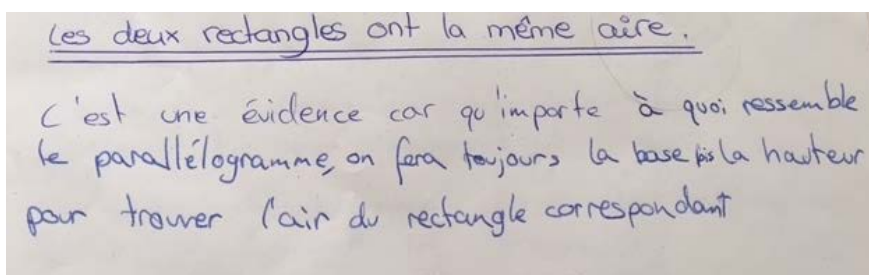 Les deux rectangles ont la même aire.
C'est une évidence car qu'importe à quoi ressemble
le parallélogramme, on fera toujours la base fois la hauteur
pour trouver l'air du rectangle correspondant